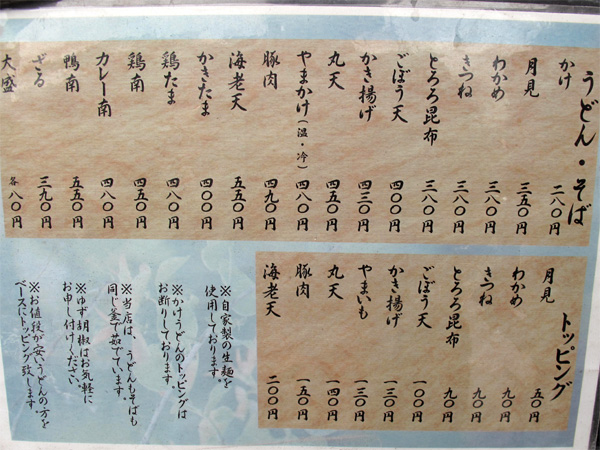 うどん・そば
かけ 二八〇円
月見 三五〇円
わかめ 三八〇円
きつね 三八〇円
とろろ昆布 三八〇円
ごぼう天 四〇〇円
かき揚げ 四三〇円
丸天 四五〇円
やまかけ(温・冷) 四八〇円
豚肉 四九〇円
海老天 五五〇円
かきたま 四〇〇円
鶏たま 四八〇円
鶏南 五五〇円
カレー南 四八〇円
鴨南 五五〇円
ざる 三九〇円
大盛 各八〇円
トッピング
月見 五〇円
わかめ 九〇円
きつね 九〇円
とろろ昆布 九〇円
ごぼう天 一〇〇円
かき揚げ 一三〇円
やまいも 一三〇円
丸天 一四〇円
豚肉 一五〇円
海老天 二〇〇円
※自家製の生麺を
使用しております。
※かけうどんのトッピングは
お断りしております。
※当店は、うどんもそばも
同じ釜で茹でています。
※ゆず胡椒はお気軽に
お申し付けください。
※お値段が安いうどんの方を
ベースにトッピング致します。